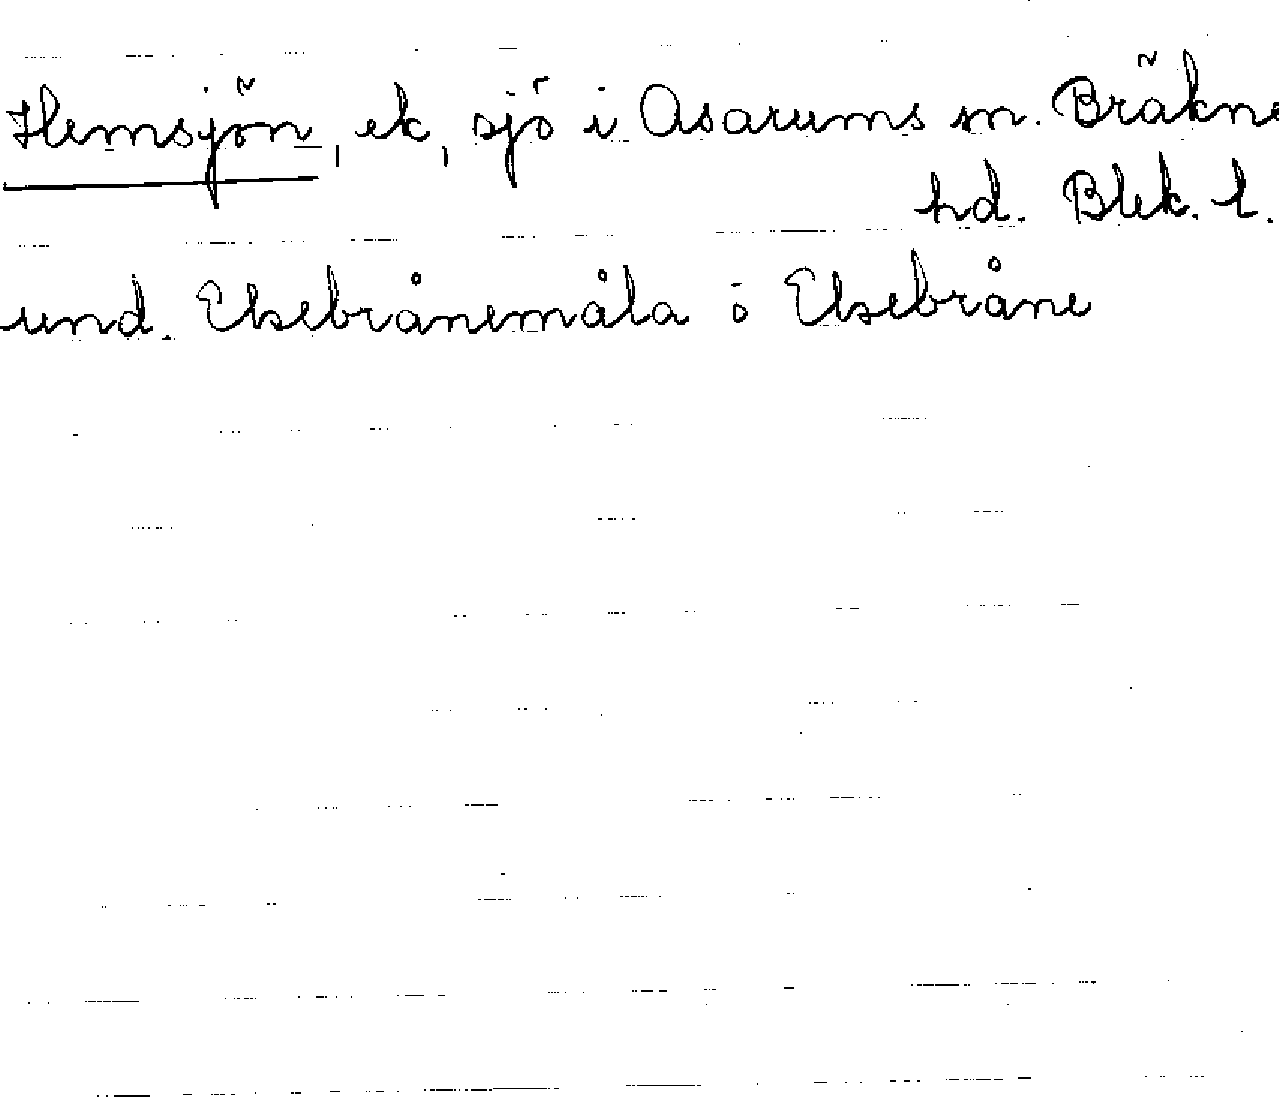 Hemsjön, ek, sjö i Asarums sn. Bräkne
hd. Blek. l.
und. Elsebrånemåla ö Elsebråne